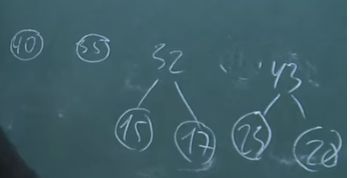 40 55 32 43
15 17 23 20